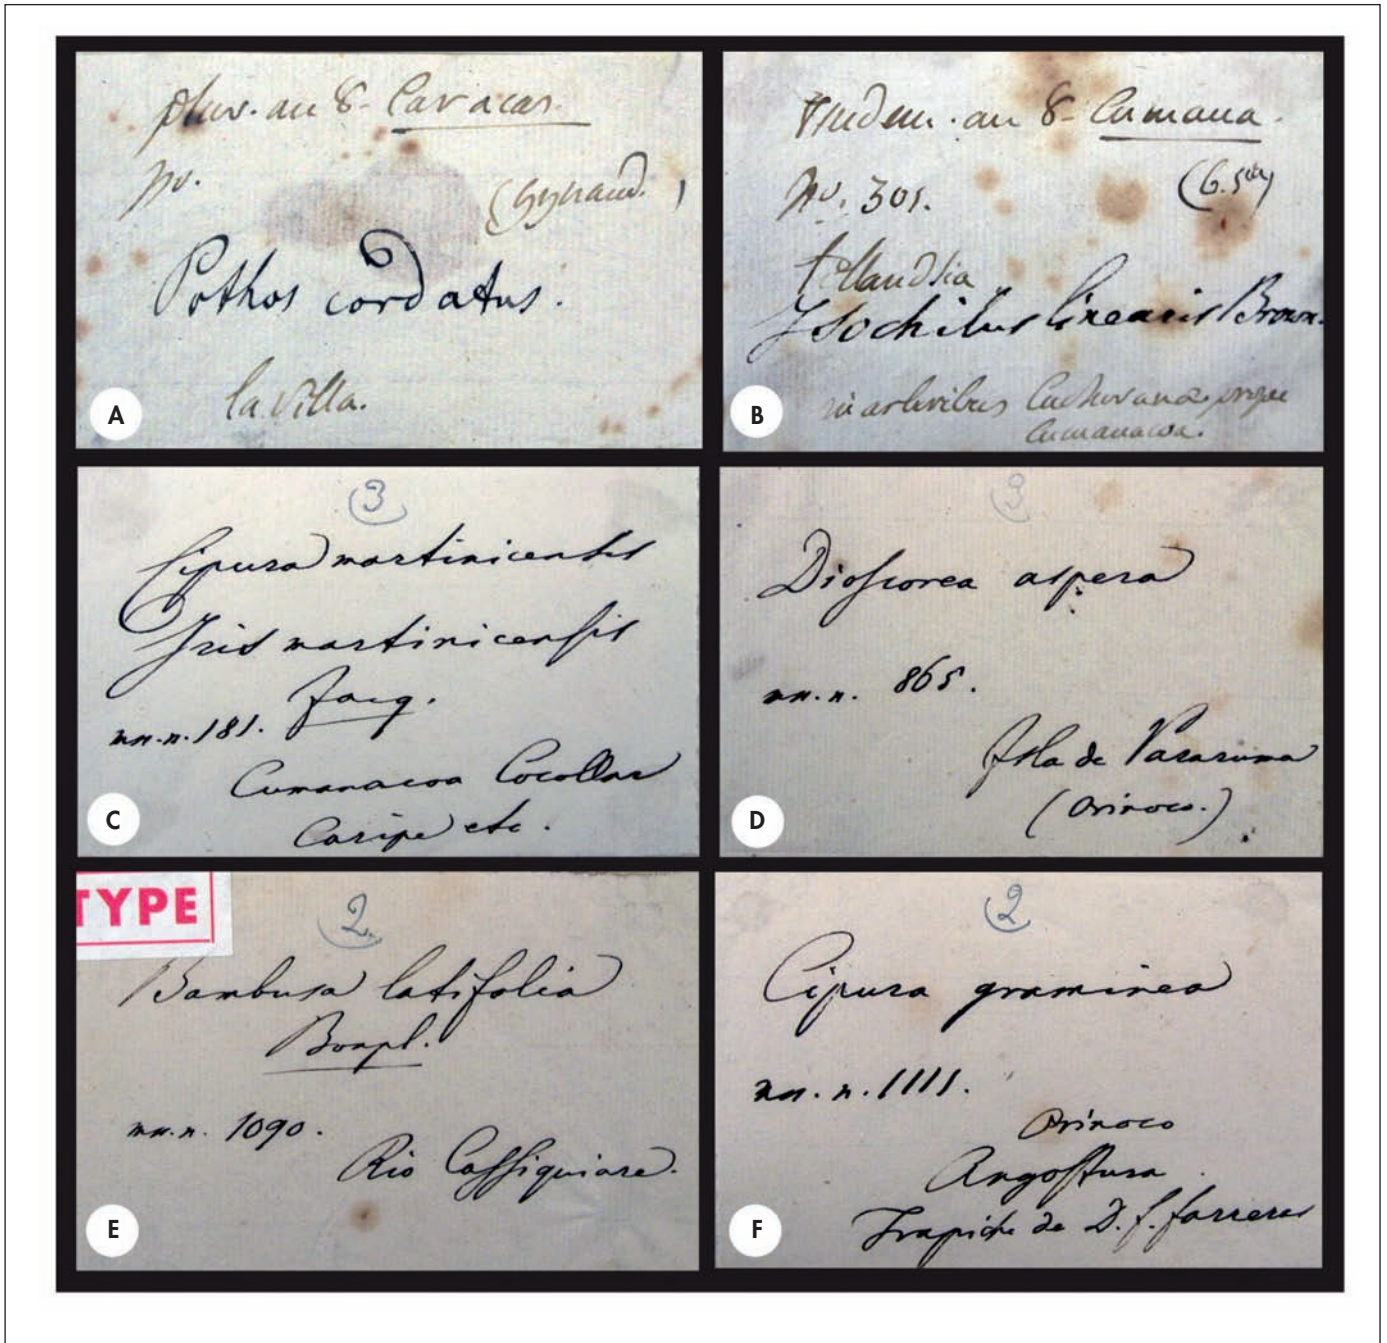 pluv. an 8. Caracas.
no.
(Gynand.)
Pothos cordatus.
la Villa.
A
an 8. Cumana.
no. 301.
tillandsia
Isochilus linearis Brown.
in arboribus prope
Cumanacoa.
B
3
Cipura martinicensis
Iris martinicensis
Jacq.
n. 181.
Cumanacoa Cocollar
Caripe etc.
C
3
Dioscorea aspera
n. 865.
Isla de Pararuma
(Orinoco.)
D
TYPE
2
Bambusa latifolia
Bonpl.
n. 1090.
Rio Cassiquiare.
E
2
Cipura graminea
n. 1111.
Orinoco
Angostura
Trapiche de D. f. farreras
F